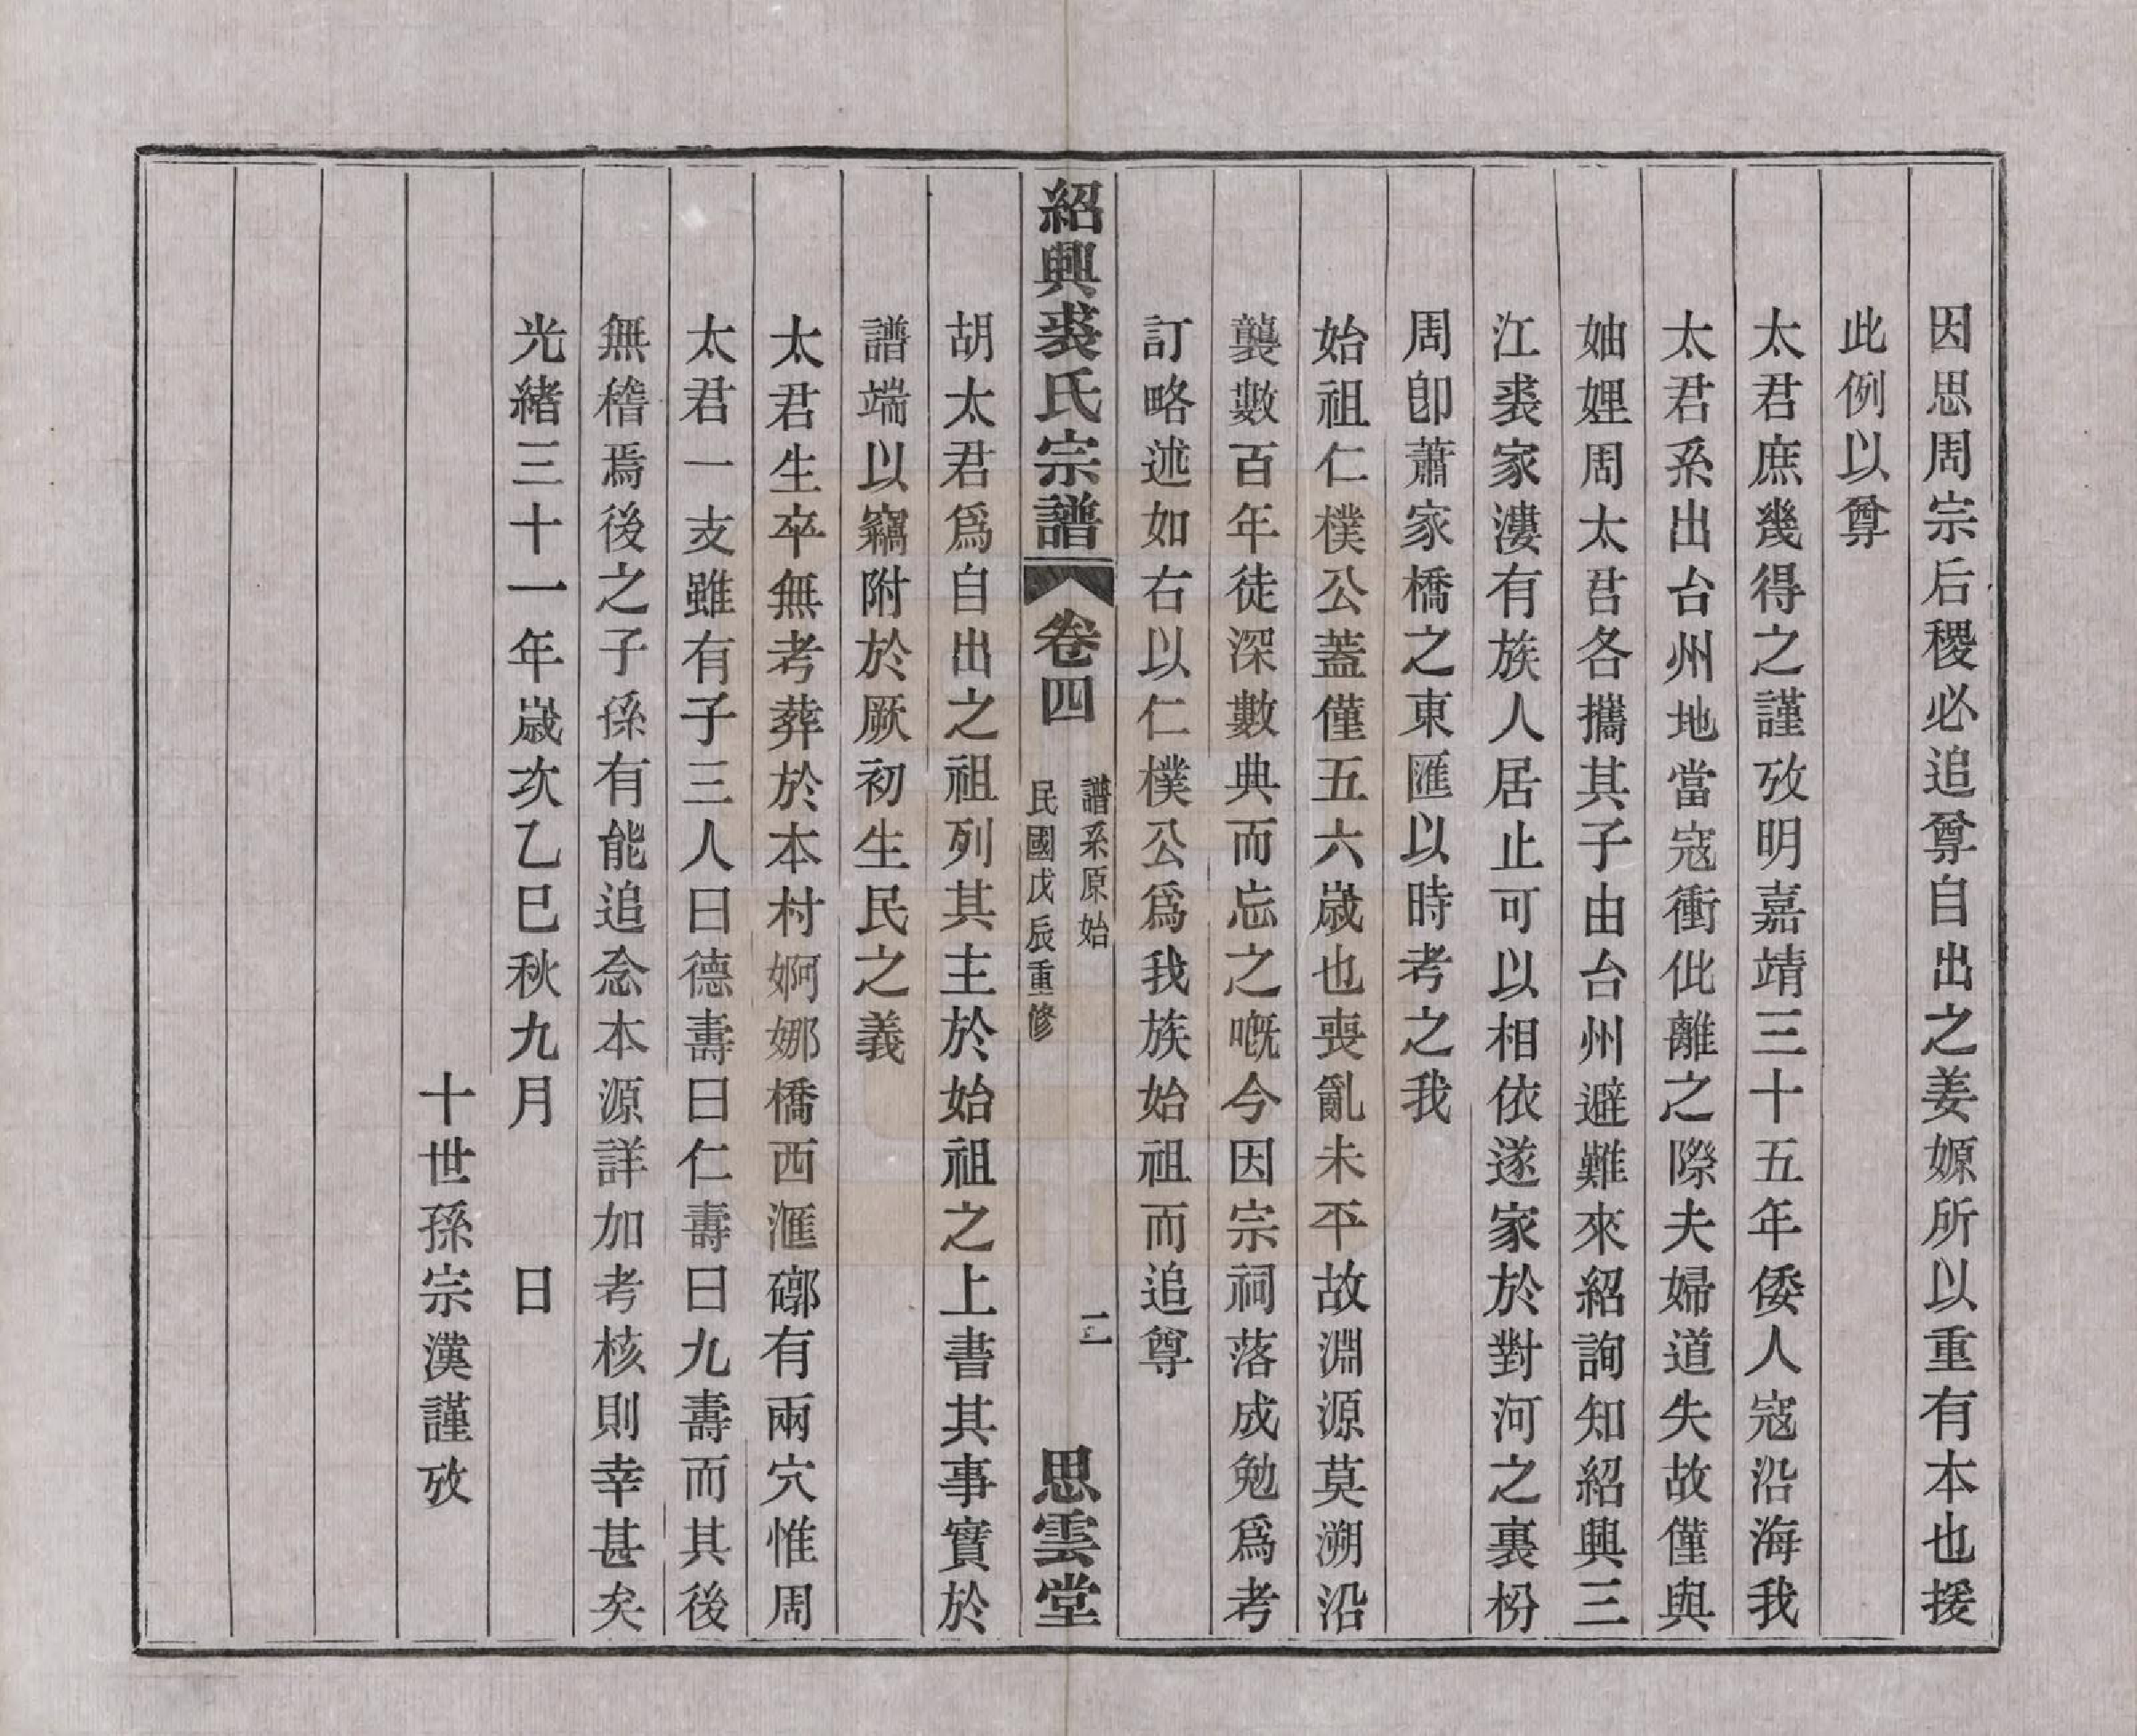 因思周宗后稷必追尊自出之姜嫄所以重有本也援
此例以尊
太君庶幾得之謹攷明嘉靖三十五年倭人寇沿海我
太君系出台州地當寇衝仳離之際夫婦道失故僅與
妯娌周太君各攜其子由台州避難來紹詢知紹興三
江裘家漊有族人居止可以相依遂家於對河之裏枌
周卽蕭家橋之東匯以時考之我
始祖仁樸公蓋僅五六歲也喪亂未平故淵源莫溯沿
襲數百年徒深數典而忘之嘅今因宗祠落成勉爲考
訂略述如右以仁樸公爲我族始祖而追尊
紹興裘氏宗譜 卷四 譜系原始 民國戊辰重修 二 思雲堂
胡太君爲自出之祖列其主於始祖之上書其事實於
譜端以竊附於厥初生民之義
太君生卒無考葬於本村婀娜橋西滙磖有兩穴惟周
太君一支雖有子三人曰德壽曰仁壽曰九壽而其後
無稽焉後之子孫有能追念本源詳加考核則幸甚矣
光緒三十一年歲次乙巳秋九月 日
十世孫宗漢謹攷